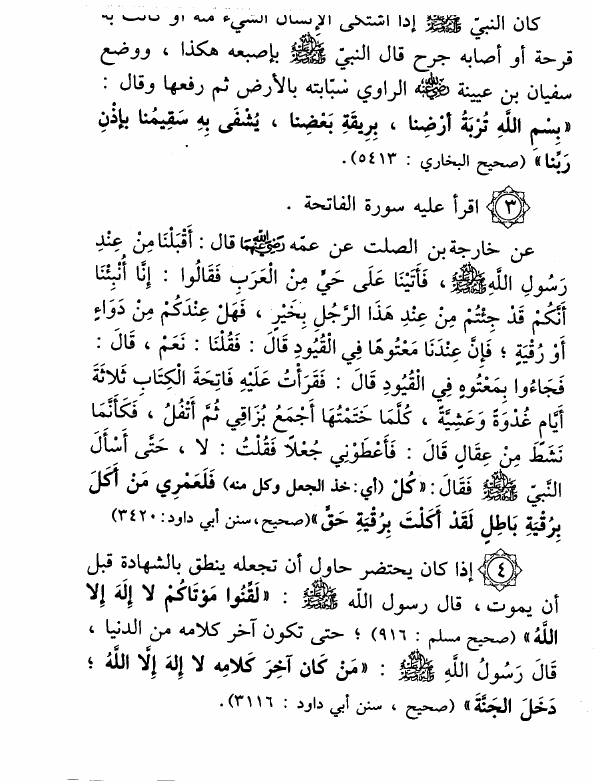 كان النبيّ ﷺ إذا اشتكى الإنسان الشيء منه أو كانت به
قرحة أو أصابه جرح قال النبيّ ﷺ بإصبعه هكذا ، ووضع
سفيان بن عيينة رضي الله عنه الراوي سبّابته بالأرض ثم رفعها وقال :
«بِسْمِ اللَّهِ تُرْبَةُ أَرْضِنا ، بِرِيقَةِ بَعْضِنا ، يُشْفَى بِهِ سَقِيمُنا بإِذْنِ
رَبِّنا» (صحيح البخاري : ٥٤١٣).
٣ اقرأ عليه سورة الفاتحة .
عن خارجة بن الصلت عن عمّه رضي الله عنهما قال : أَقْبَلْنَا مِنْ عِنْدِ
رَسُولِ اللَّهِ ﷺ ، فَأَتَيْنَا عَلَى حَيٍّ مِنْ الْعَرَبِ فَقَالُوا : إِنَّا أُنْبِئْنَا
أَنَّكُمْ قَدْ جِئْتُمْ مِنْ عِنْدِ هَذَا الرَّجُلِ بِخَيْرٍ ، فَهَلْ عِنْدَكُمْ مِنْ دَوَاءٍ
أَوْ رُقْيَةٍ ؛ فَإِنَّ عِنْدَنَا مَعْتُوهًا فِي الْقُيُودِ قَالَ : فَقُلْنَا : نَعَمْ ، قَالَ :
فَجَاءُوا بِمَعْتُوهٍ فِي الْقُيُودِ قَالَ : فَقَرَأْتُ عَلَيْهِ فَاتِحَةَ الْكِتَابِ ثَلَاثَةَ
أَيَّامٍ غُدْوَةً وَعَشِيَّةً ، كُلَّمَا خَتَمْتُهَا أَجْمَعُ بُزَاقِي ثُمَّ أَتْفُلُ ، فَكَأَنَّمَا
نَشَطَ مِنْ عِقَالٍ قَالَ : فَأَعْطَوْنِي جُعْلًا فَقُلْتُ : لا ، حَتَّى أَسْأَلَ
النَّبِيَّ ﷺ فَقَالَ : «كُلْ (أي: خذ الجعل وكل منه) فَلَعَمْرِي مَنْ أَكَلَ
بِرُقْيَةِ بَاطِلٍ لَقَدْ أَكَلْتَ بِرُقْيَةِ حَقٍّ» (صحيح، سنن أبي داود: ٣٤٢٠)
٤ إذا كان يحتضر حاول أن تجعله ينطق بالشهادة قبل
أن يموت ، قال رسول الله ﷺ : «لَقِّنُوا مَوْتَاكُمْ لا إِلَهَ إِلا
اللَّهُ» (صحيح مسلم : ٩١٦) ؛ حتى تكون آخر كلامه من الدنيا ،
قَالَ رَسُولُ اللَّهِ ﷺ : «مَنْ كَان آخِرَ كلامِه لا إِلهَ إلَّا اللَّهُ ؛
دَخَلَ الجَنَّةَ» (صحيح ، سنن أبي داود : ٣١١٦).